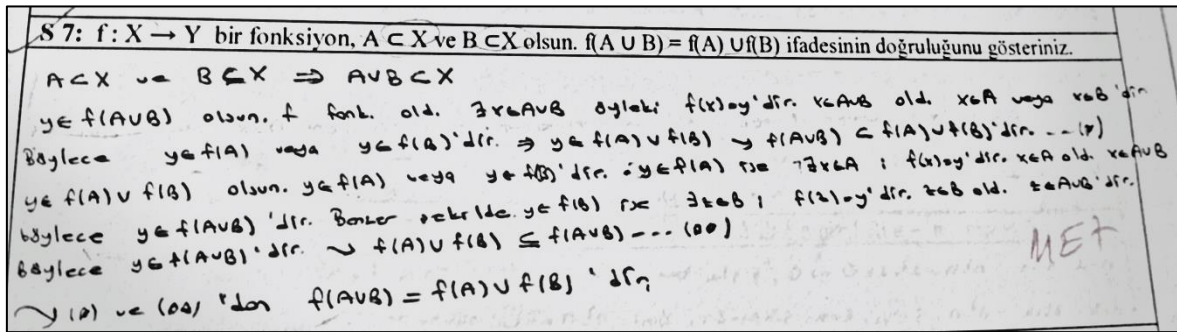 S 7: f : X → Y bir fonksiyon, A ⊂ X ve B ⊂X olsun. f(A ∪ B) = f(A) ∪f(B) ifadesinin doğruluğunu gösteriniz.
A⊂X ve B⊆X ⇒ A∪B⊂X
y∈ f(A∪B) olsun. f fonk. old. ∃x∈A∪B öyleki f(x)=y'dir. x∈A∪B old. x∈A veya x∈B'dir
Böylece y∈f(A) veya y∈f(B)'dir. ⇒ y∈ f(A)∪f(B) ⤳ f(A∪B) ⊂ f(A)∪f(B)'dir. ...(*)
y∈ f(A)∪ f(B) olsun. y∈f(A) veya y∈ f(B)'dir. • y∈f(A) ise ∃x∈A ; f(x)=y'dir. x∈A old. x∈A∪B
böylece y∈f(A∪B)'dir. Benzer şekilde. y∈ f(B) ise ∃z∈B ; f(z)=y'dir. z∈B old. z∈A∪B'dir.
Böylece y∈f(A∪B)'dir. ⤳ f(A)∪f(B) ⊆ f(A∪B) --- (**)
⤳ (*) ve (**) 'dan f(A∪B) = f(A)∪f(B) 'dir
MET